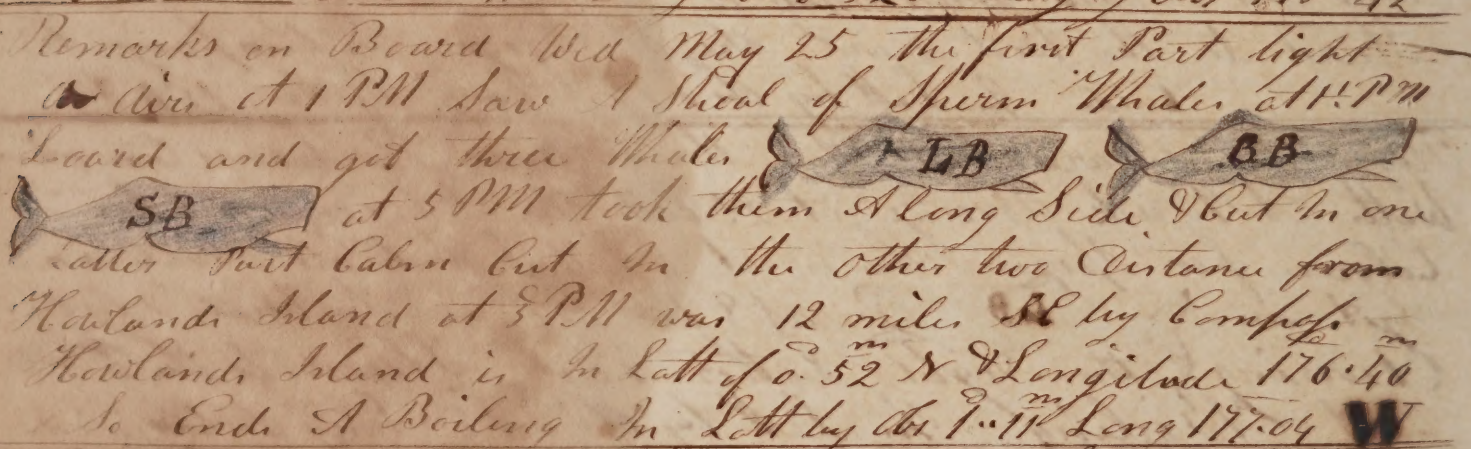 Remarks on Board Wed May 25 the first Part light
airs at 1 PM Saw A Sheal of Sperm Whales at 1½ PM
Loard and got three Whales LB BB
SB at 5 PM took them Along Side & Cut In one
Latter Part Calm Cut In the other two Distance from
Howlands Island at 5 PM was 12 miles SE by Compass
Howlands Island is In Latt of 0°.52m N & Longitude 176°.40m
So Ends A Boiling In Latt by Obs 1°..11m Long 177.04 W